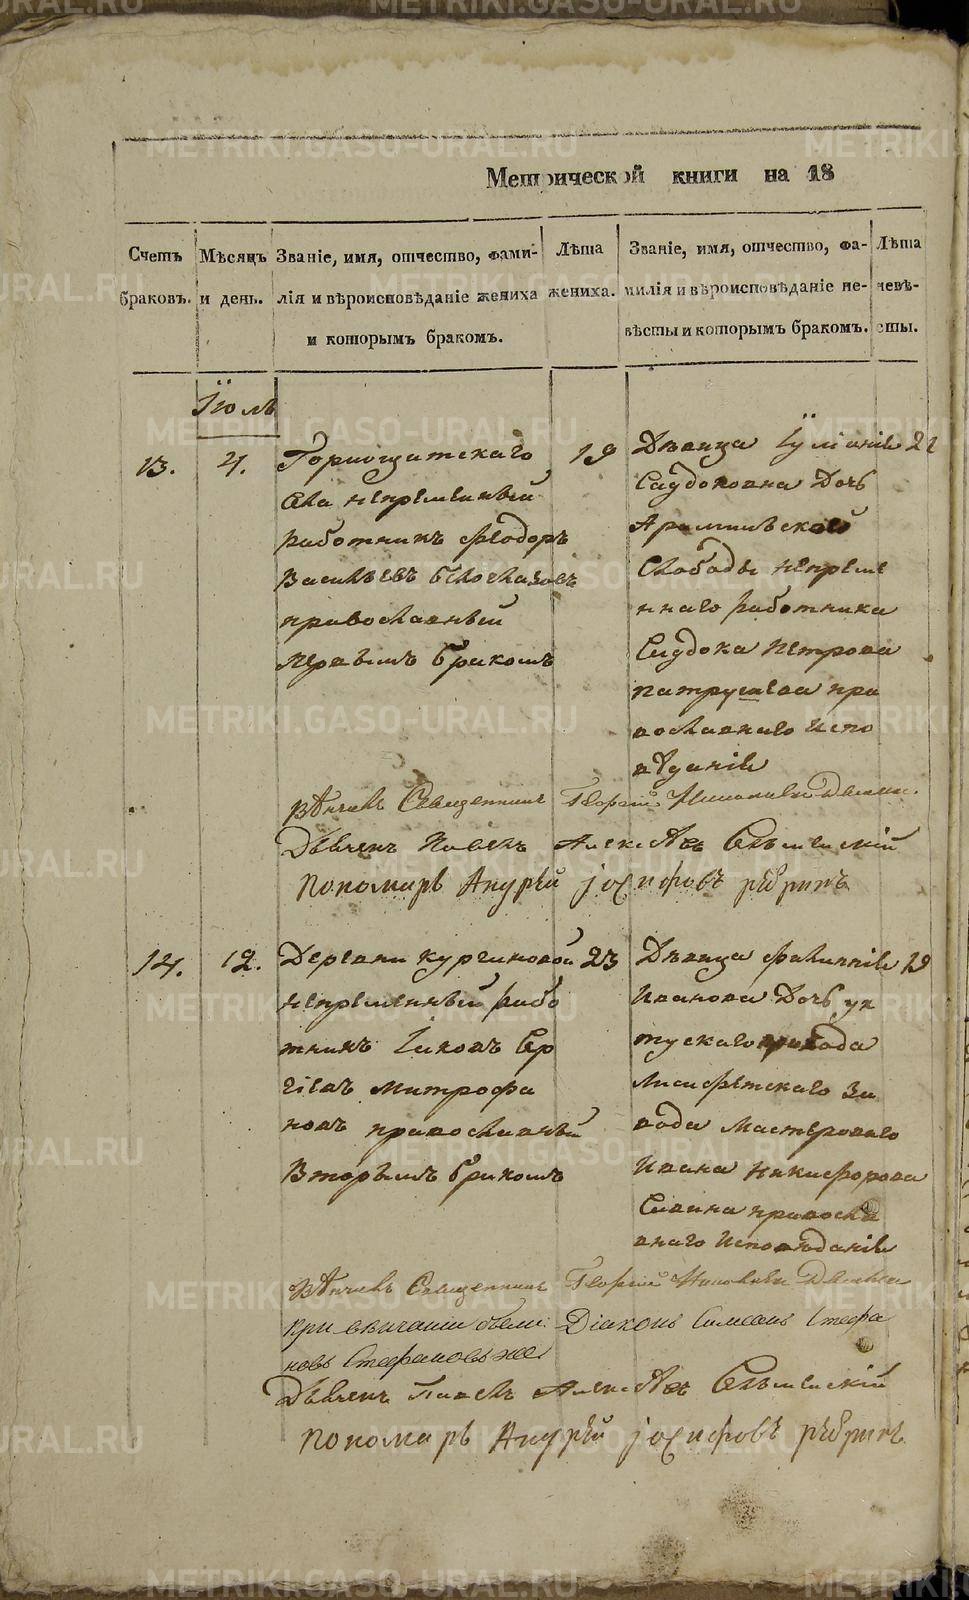 Метрической книги на 18
Счетъ браковъ.
Мѣсяцъ и день.
Званіе, имя, отчество, фами-
лія и вѣроисповѣданіе жениха
и которымъ бракомъ.
Лѣта
жениха.
Званіе, имя, отчество, фа-
милія и вѣроисповѣданіе не-
вѣсты и которымъ бракомъ.
Лѣта
невѣ-
сты.
Іюль
13.
4.
Горнощитскаго
села непременный
работникъ Феодоръ
Васильевъ Белоглазовъ
православный
первымъ бракомъ
19
Девица Іуліаніе
Сидоровна Дочь
Арамильской
Слободы непреме
ннаго работника
Сидора Петрова
Патрушева пра
вославнаго испо
вѣданіе
21
Вѣнчалъ Священникъ Георгий
Дьячекъ Павелъ Алексѣевъ
Пономарь Андрѣй Іосифовъ
14.
12.
Деревни Кургановой
непременный рабо
тникъ Іаковъ Сер
гіевъ Митрофа
новъ православный
Вторымъ бракомъ
23
Девица
Иванова Дочь ук
тускаго прихода
Елисаветскаго за
вода мастероваго
Ивана Никифорова
Савина правосла
внаго исповѣданіе
19
Вѣнчалъ Священникъ Георгий
при венчании были Діаконъ Симеонъ Стефа
новъ Стефановъ же
Дьячекъ Павелъ Алексѣевъ
Пономарь Андрѣй Іосифовъ
METRIKI.GASO-URAL.RU